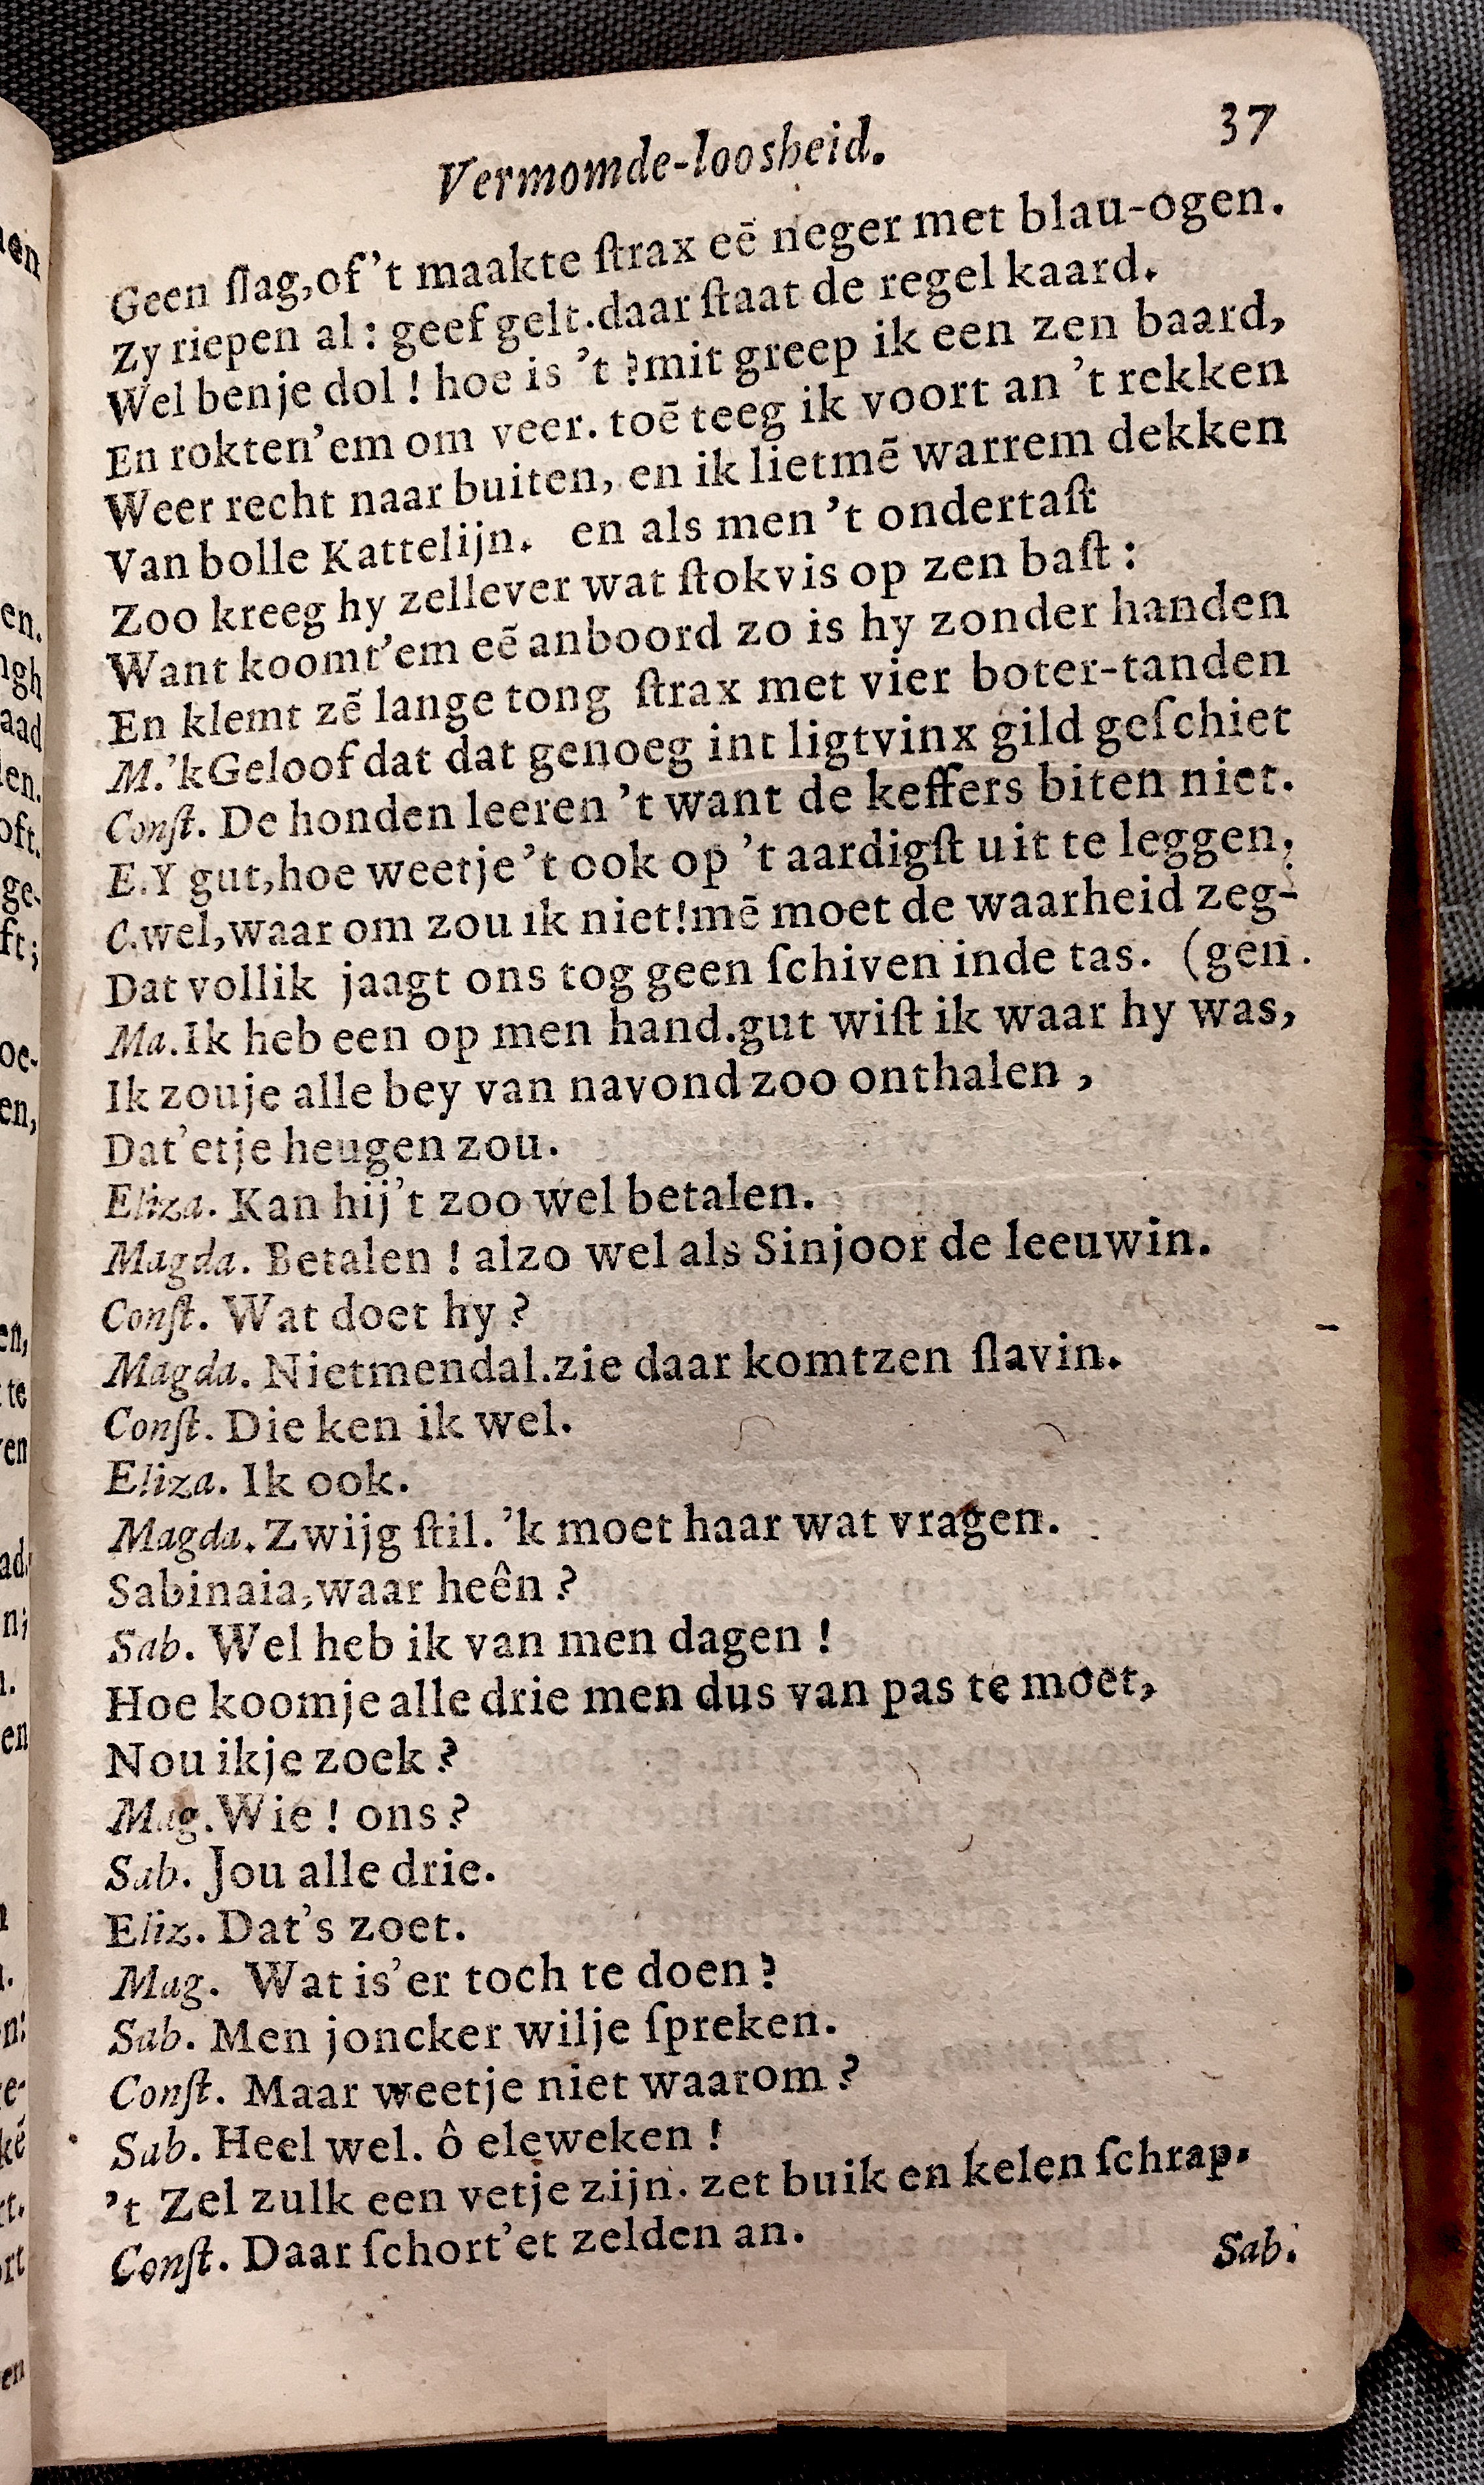 Vermomde-loosheid. 37
Geen ſlag,of 't maakte ſtrax eē neger met blau-ogen.
Zy riepen al : geef gelt.daar ſtaat de regel kaard.
Wel benje dol ! hoe is 't ?mit greep ik een zen baard,
En rokten'em om veer. toē teeg ik voort an 't rekken
Weer recht naar buiten, en ik lietmē warrem dekken
Van bolle Kattelijn. en als men 't ondertaſt
Zoo kreeg hy zellever wat ſtokvis op zen baſt :
Want koomt'em eē anboord zo is hy zonder handen
En klemt zē lange tong ſtrax met vier boter-tanden
M.'k Geloof dat dat genoeg int ligtvinx gild geſchiet
Conſt. De honden leeren 't want de keffers biten niet.
E.Y gut,hoe weetje 't ook op 't aardigſt uit te leggen;
C.wel,waar om zou ik niet!mē moet de waarheid zeg-
Dat vollik jaagt ons tog geen ſchiven inde tas. (gen.
Ma.Ik heb een op men hand.gut wiſt ik waar hy was,
Ik zouje alle bey van navond zoo onthalen ,
Dat'etje heugen zou.
Eliza. Kan hij't zoo wel betalen.
Magda. Betalen ! alzo wel als Sinjoor de leeuwin.
Conſt. Wat doet hy ?
Magda. Nietmendal.zie daar komtzen ſlavin.
Conſt. Die ken ik wel.
Eliza. Ik ook.
Magda. Zwijg ſtil. 'k moet haar wat vragen.
Sabinaia,waar heên ?
Sab. Wel heb ik van men dagen !
Hoe koomje alle drie men dus van pas te moet,
Nou ikje zoek ?
Mag.Wie ! ons ?
Sab. Jou alle drie.
Eliz. Dat's zoet.
Mag. Wat is'er toch te doen ?
Sab. Men joncker wilje ſpreken.
Conſt. Maar weetje niet waarom ?
Sab. Heel wel. ô eleweken !
't Zel zulk een vetje zijn. zet buik en kelen ſchrap.
Conſt. Daar ſchort'et zelden an.
Sab.